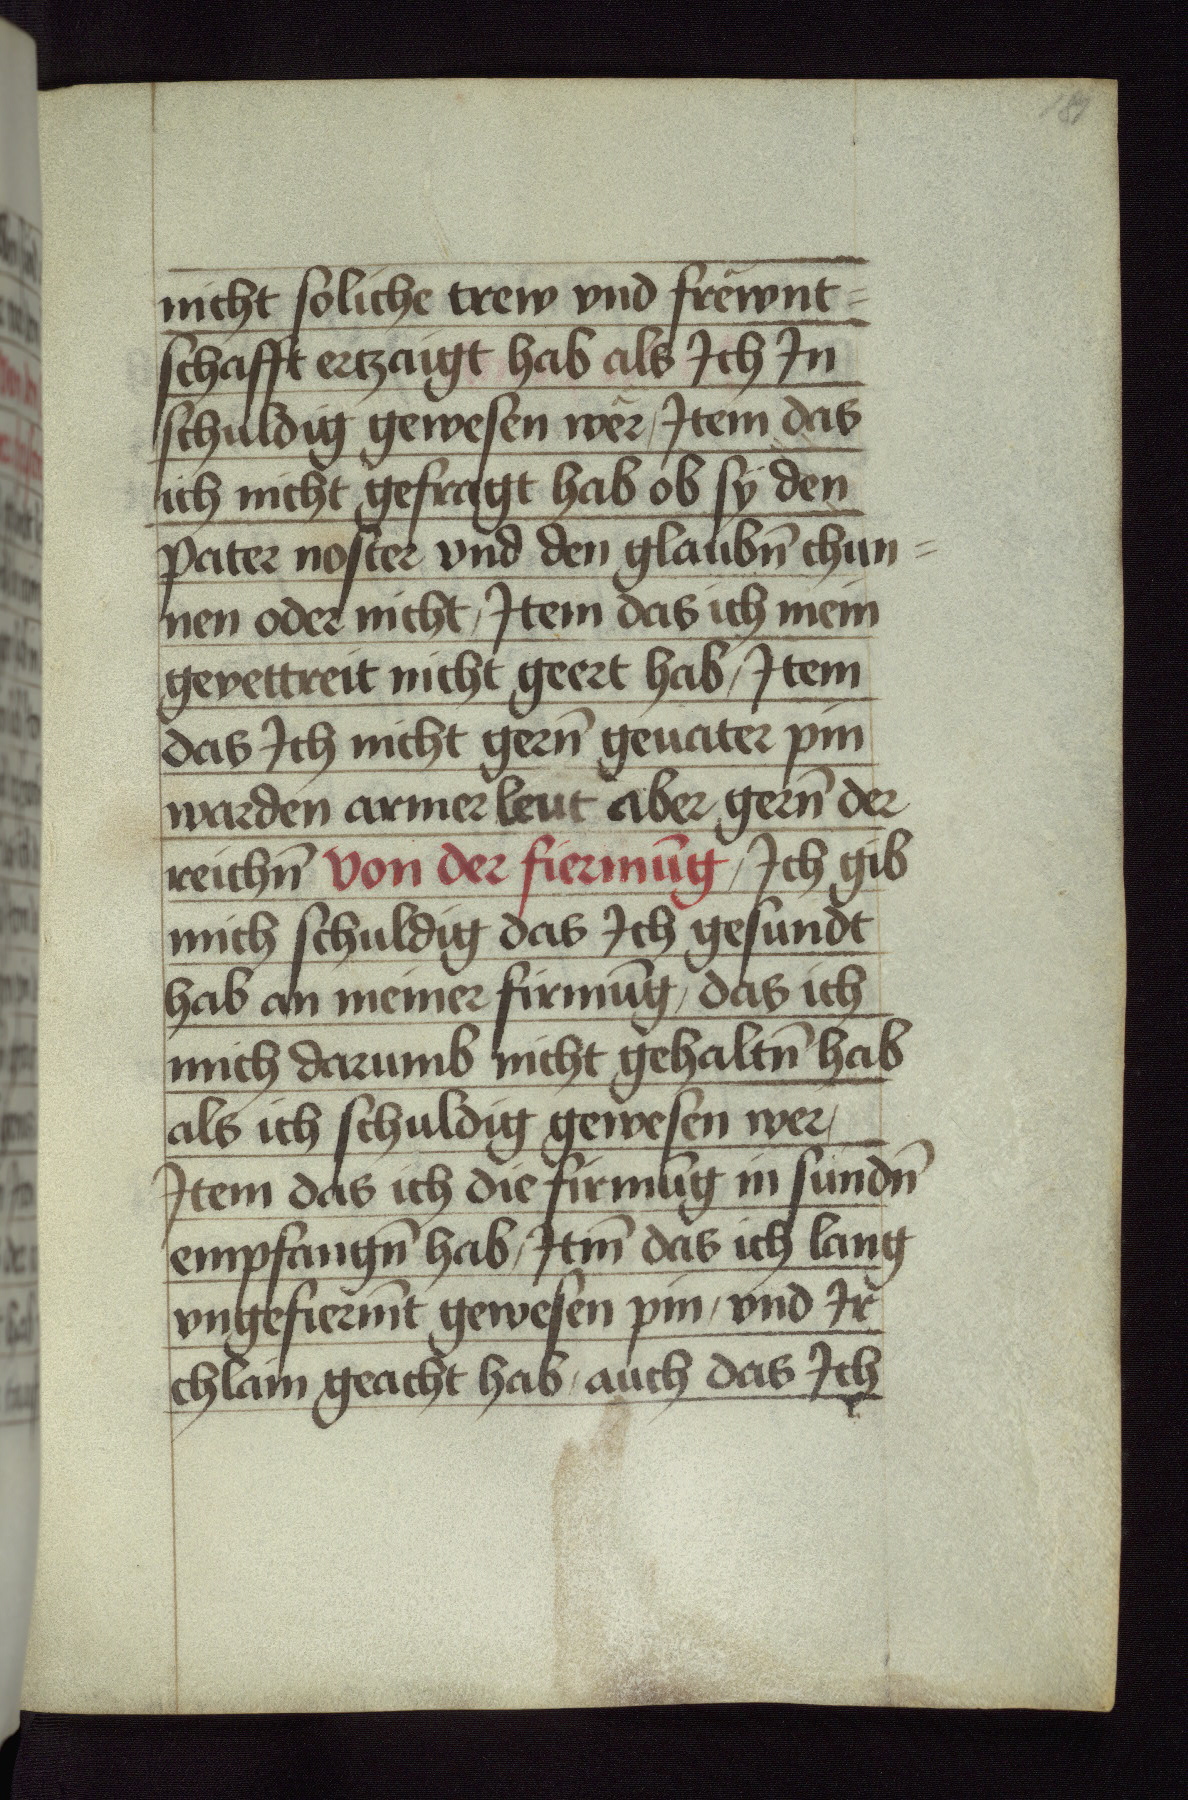 187
nicht soliche trew vnd frëwnt=
schafft ertzaigt hab als Ich In
schuldig gewesen wër / Item das
ich nicht gefragt hab ob sÿ den
pater noster vnd den glaubn̄ chun=
nen oder nicht / Item das ich mein
gevettreit nicht geert hab / Item
das Ich nicht gern̄ geuater pin
warden armer leut aber gern̄ der
reichn̄ Von der fiermūg / Ich gib
mich schuldig das Ich gesundt
hab an meiner firmūg / das ich
mich darumb nicht gehaltn̄ hab
als ich schuldig gewesen wer /
Item das ich die firmūg in sündn̄
empfangn̄ hab / Itm̄ das ich lang
vngefierm̄t gewesen pin / vnd Ir
chlain geacht hab / auch das Ich